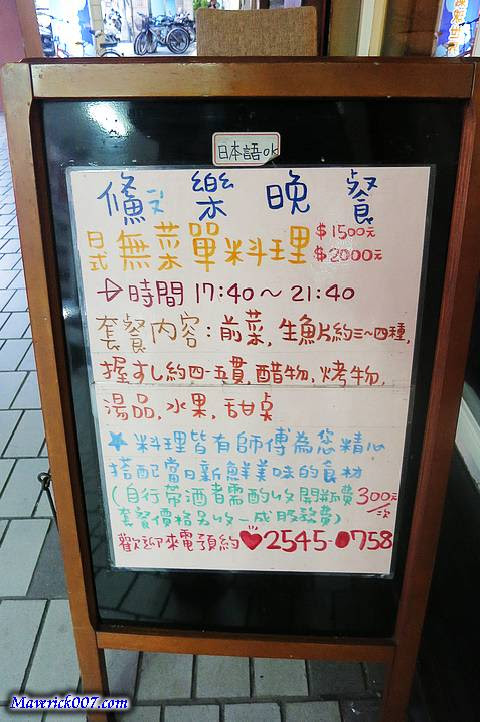 日本語ok
樂晚餐
日式無菜單料理 $1500元
$2000元
時間 17:40～21:40
套餐内容：前菜,生魚片約三~四種,
握すし約四-五貫,醋物,烤物,
湯品,水果,甜桌
★料理皆有師傅為您精心
搭配當日新鮮美味的食材
(自行帶酒者需酌收開瓶費300元/次
套餐價格另收一成服務費)
歡迎來電預約♥2545-0758
Maverick007.com